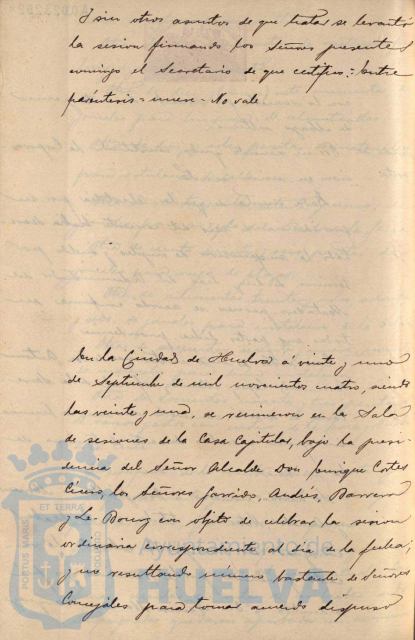 Y sin otros asuntos de que tratar se levantó
la sesion firmando los Señores presentes
conmigo el Secretario de que certifico:- Entre
paréntesis = nueve = No vale
En la Ciudad de Huelva á veinte y uno
de Septiembre de mil novecientos cuatro, siendo
las veinte y una, se reunieron en la Sala
de sesiones de la Casa Capitular, bajo la presi-
dencia del Señor Alcalde Don Enrique Cortes
los Señores Garrido, Andrés, Barrera
y Le-Bourg con objeto de celebrar la sesion
ordinaria correspondiente al dia de la fecha;
y no resultando número bastante de Señores
Concejales para tomar acuerdo dispuso
PORTUS MARIS
ET TERRÆ
Ayuntamiento de
HUELVA